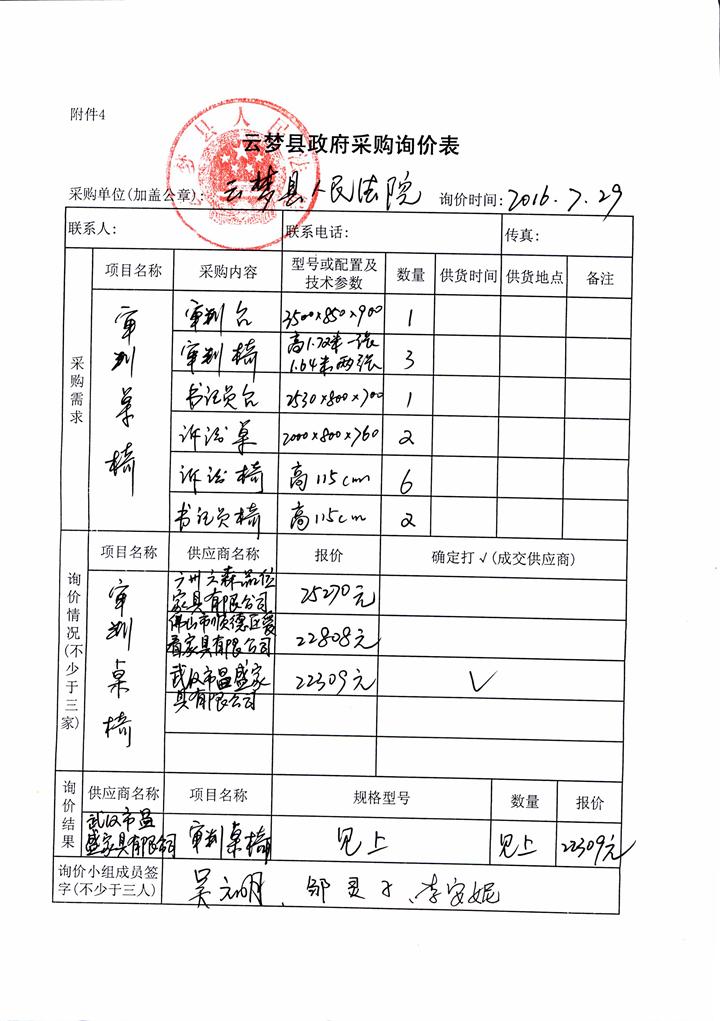 附件4
云梦县政府采购询价表
采购单位(加盖公章): 云梦县人民法院 询价时间: 2016.7.29
联系人: 联系电话: 传真:
采购需求 项目名称 采购内容 型号或配置及技术参数 数量 供货时间 供货地点 备注
审判桌椅
审判台 3500×850×900 1
审判椅 高1.72米一张 1.64米两张 3
书记员台 2530×800×700 1
诉讼桌 2000×800×760 2
诉讼椅 高115cm 6
书记员椅 高115cm 2
询价情况(不少于三家) 项目名称 供应商名称 报价 确定打√(成交供应商)
审判桌椅
广州立森品位家具有限公司 25270元
佛山市顺德区爱着家具有限公司 22808元
武汉市昌盛家具有限公司 22309元 √
询价结果 供应商名称 项目名称 规格型号 数量 报价
武汉市昌盛家具有限公司 审判桌椅 见上 见上 22309元
询价小组成员签字(不少于三人) 吴元明、邹灵子、李安妮